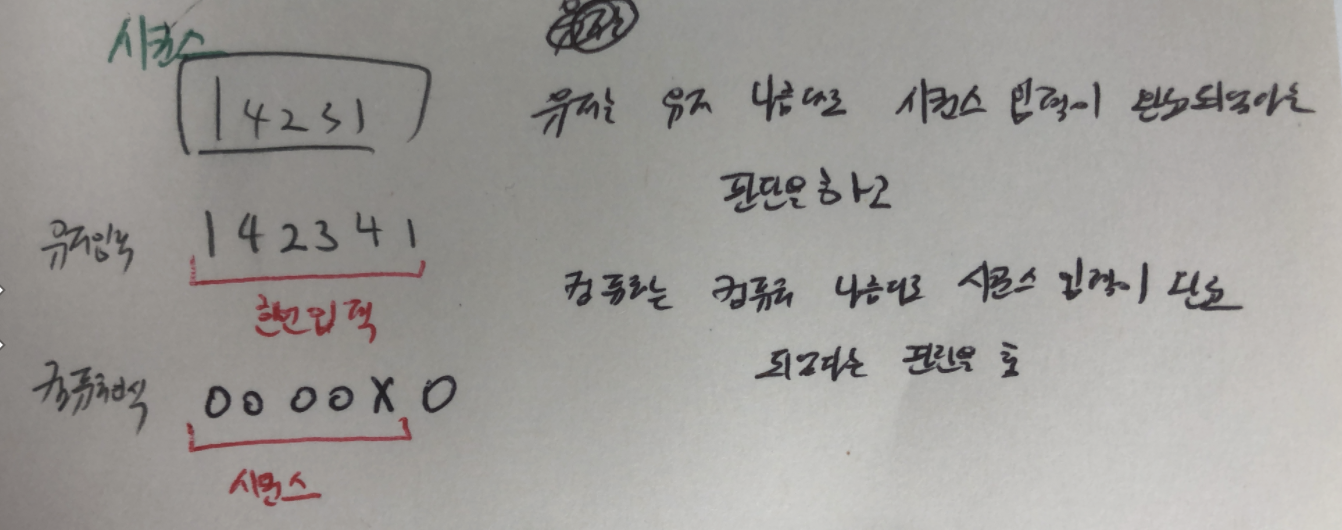 시퀀스
14231
유저입력
142341
한번입력
컴퓨터인식
0000X0
시퀀스
유저는 유저 나름대로 시퀀스 입력이 완료되었다는
판단을 하고
컴퓨터는 컴퓨터 나름대로 시퀀스 입력이 완료
되었다는 판단을 함